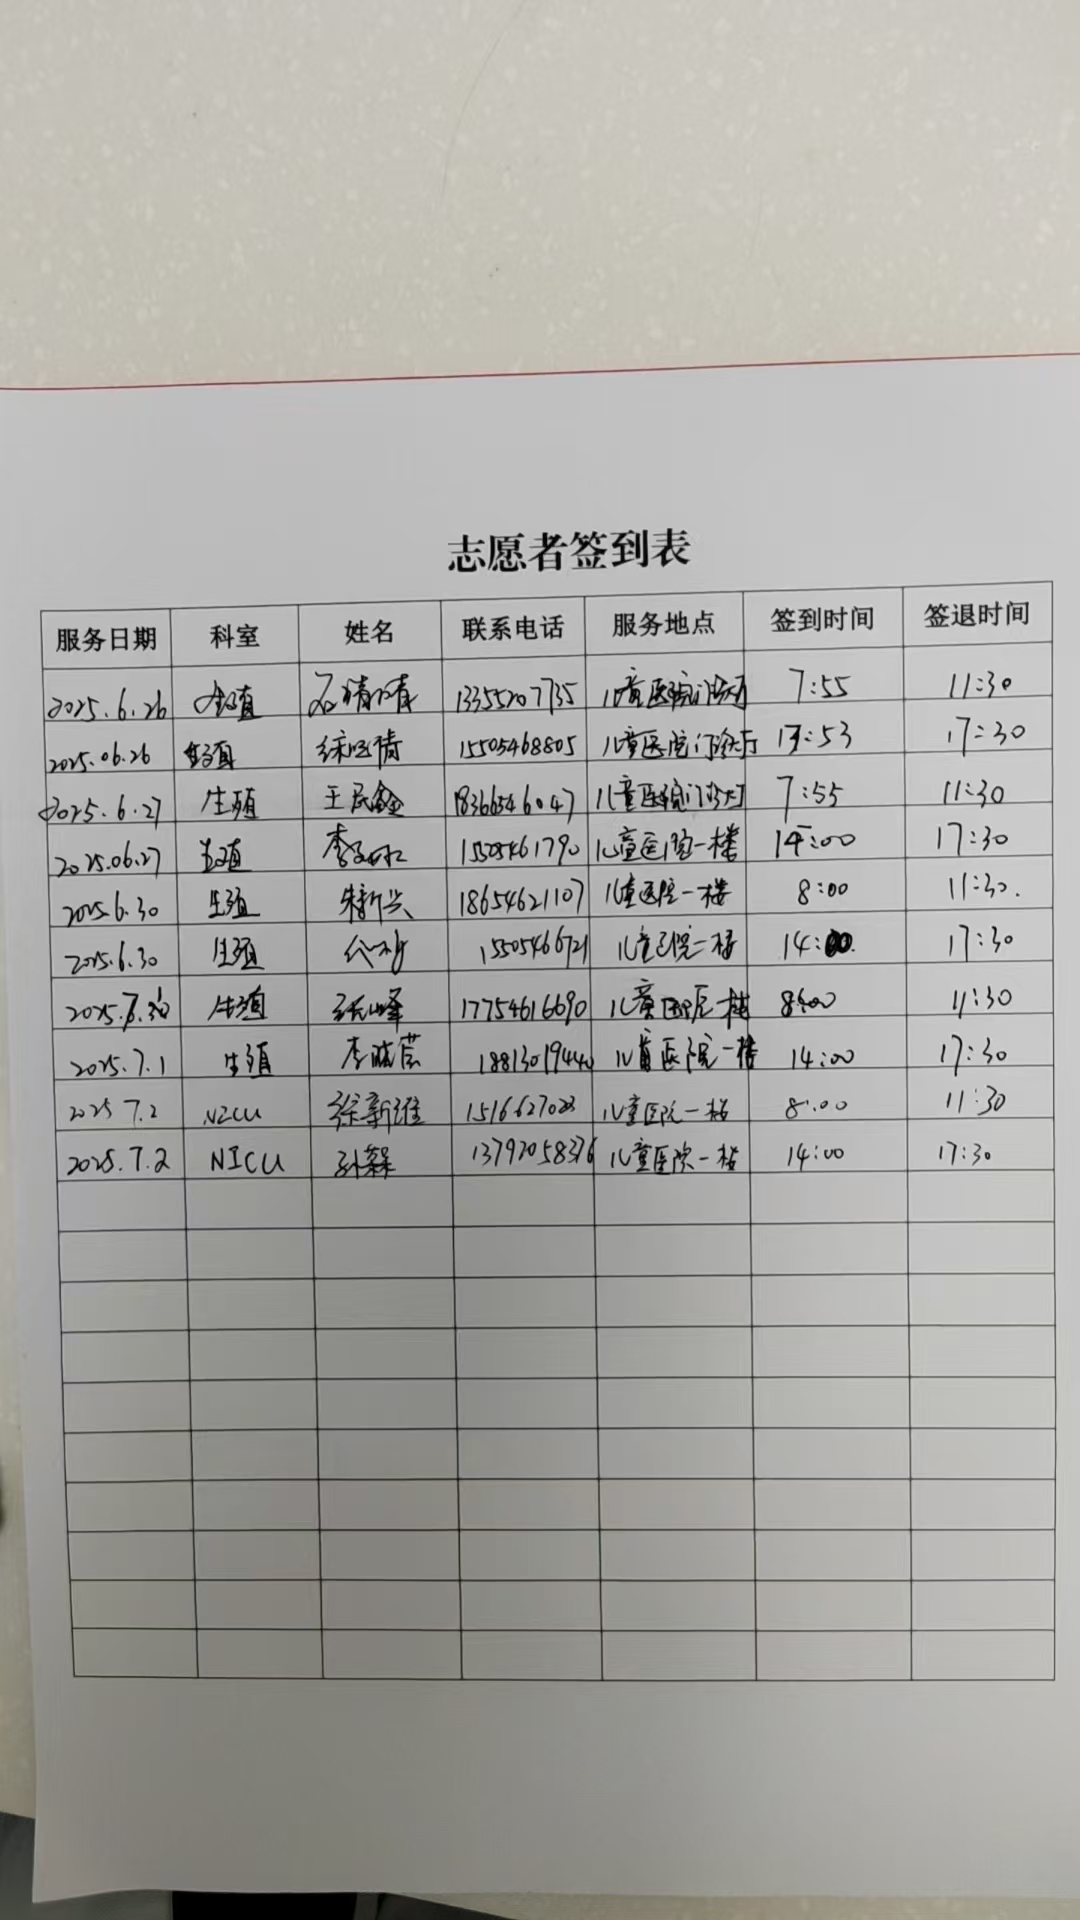 志愿者签到表
服务日期 科室 姓名 联系电话 服务地点 签到时间 签退时间
2025.6.26 生殖 石晴晴 13355207735 儿童医院门诊大厅 7:55 11:30
2025.06.26 生殖 15505468805 儿童医院门诊大厅 13:53 17:30
2025.6.27 生殖 王民鑫 18366546047 儿童医院门诊大厅 7:55 11:30
2025.06.27 生殖 15505461790 儿童医院一楼 14:00 17:30
2025.6.30 生殖 朱新兴 18654621107 儿童医院一楼 8:00 11:30.
2025.6.30 生殖 15505466721 儿童医院一楼 14:00. 17:30
生殖 张峰 17754616690 儿童医院一楼 8:00 11:30
2025.7.1 生殖 18813019440 儿童医院一楼 14:00 17:30
2025 7.2 NICU 徐新维 儿童医院一楼 8:00 11:30
2025.7.2 NICU 13792058376 儿童医院一楼 14:00 17:30